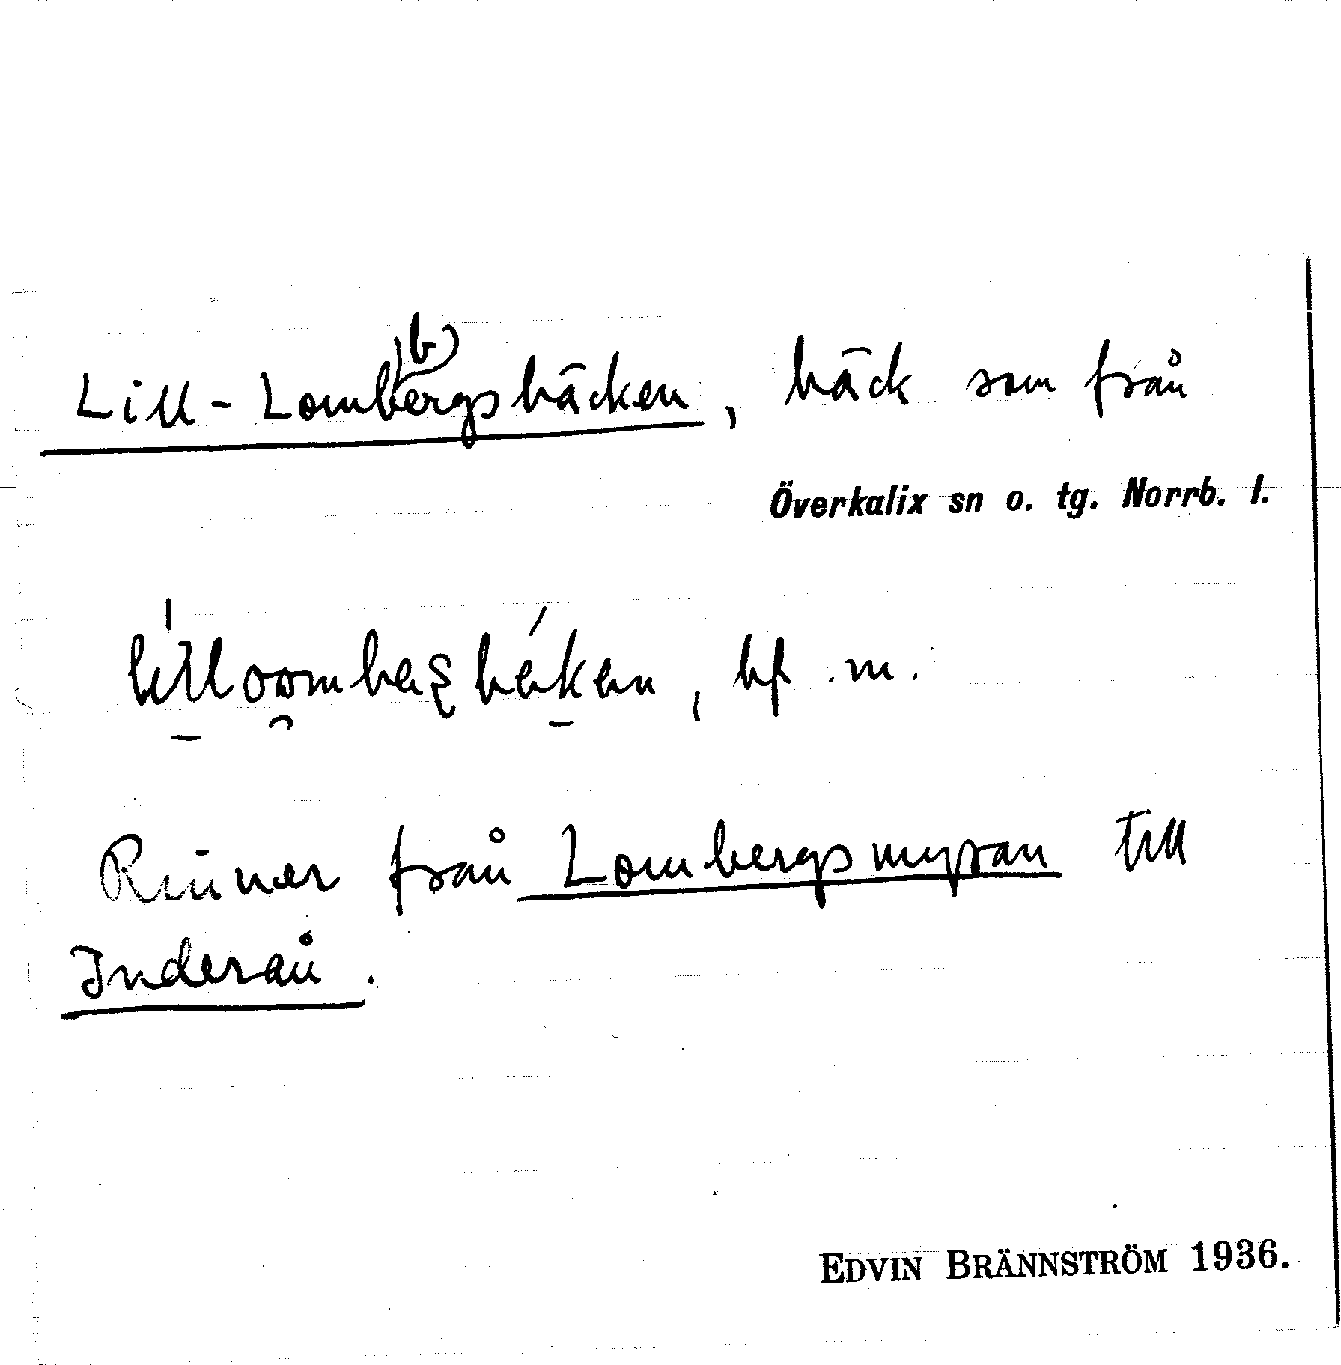 Lill-Lomb(b)ergsbäcken, bäck som från
Överkalix sn o. tg. Norrb. l.
bf. m.
Rinner från Lombergsmyran till
Inderån.
EDVIN BRÄNNSTRÖM 1936.